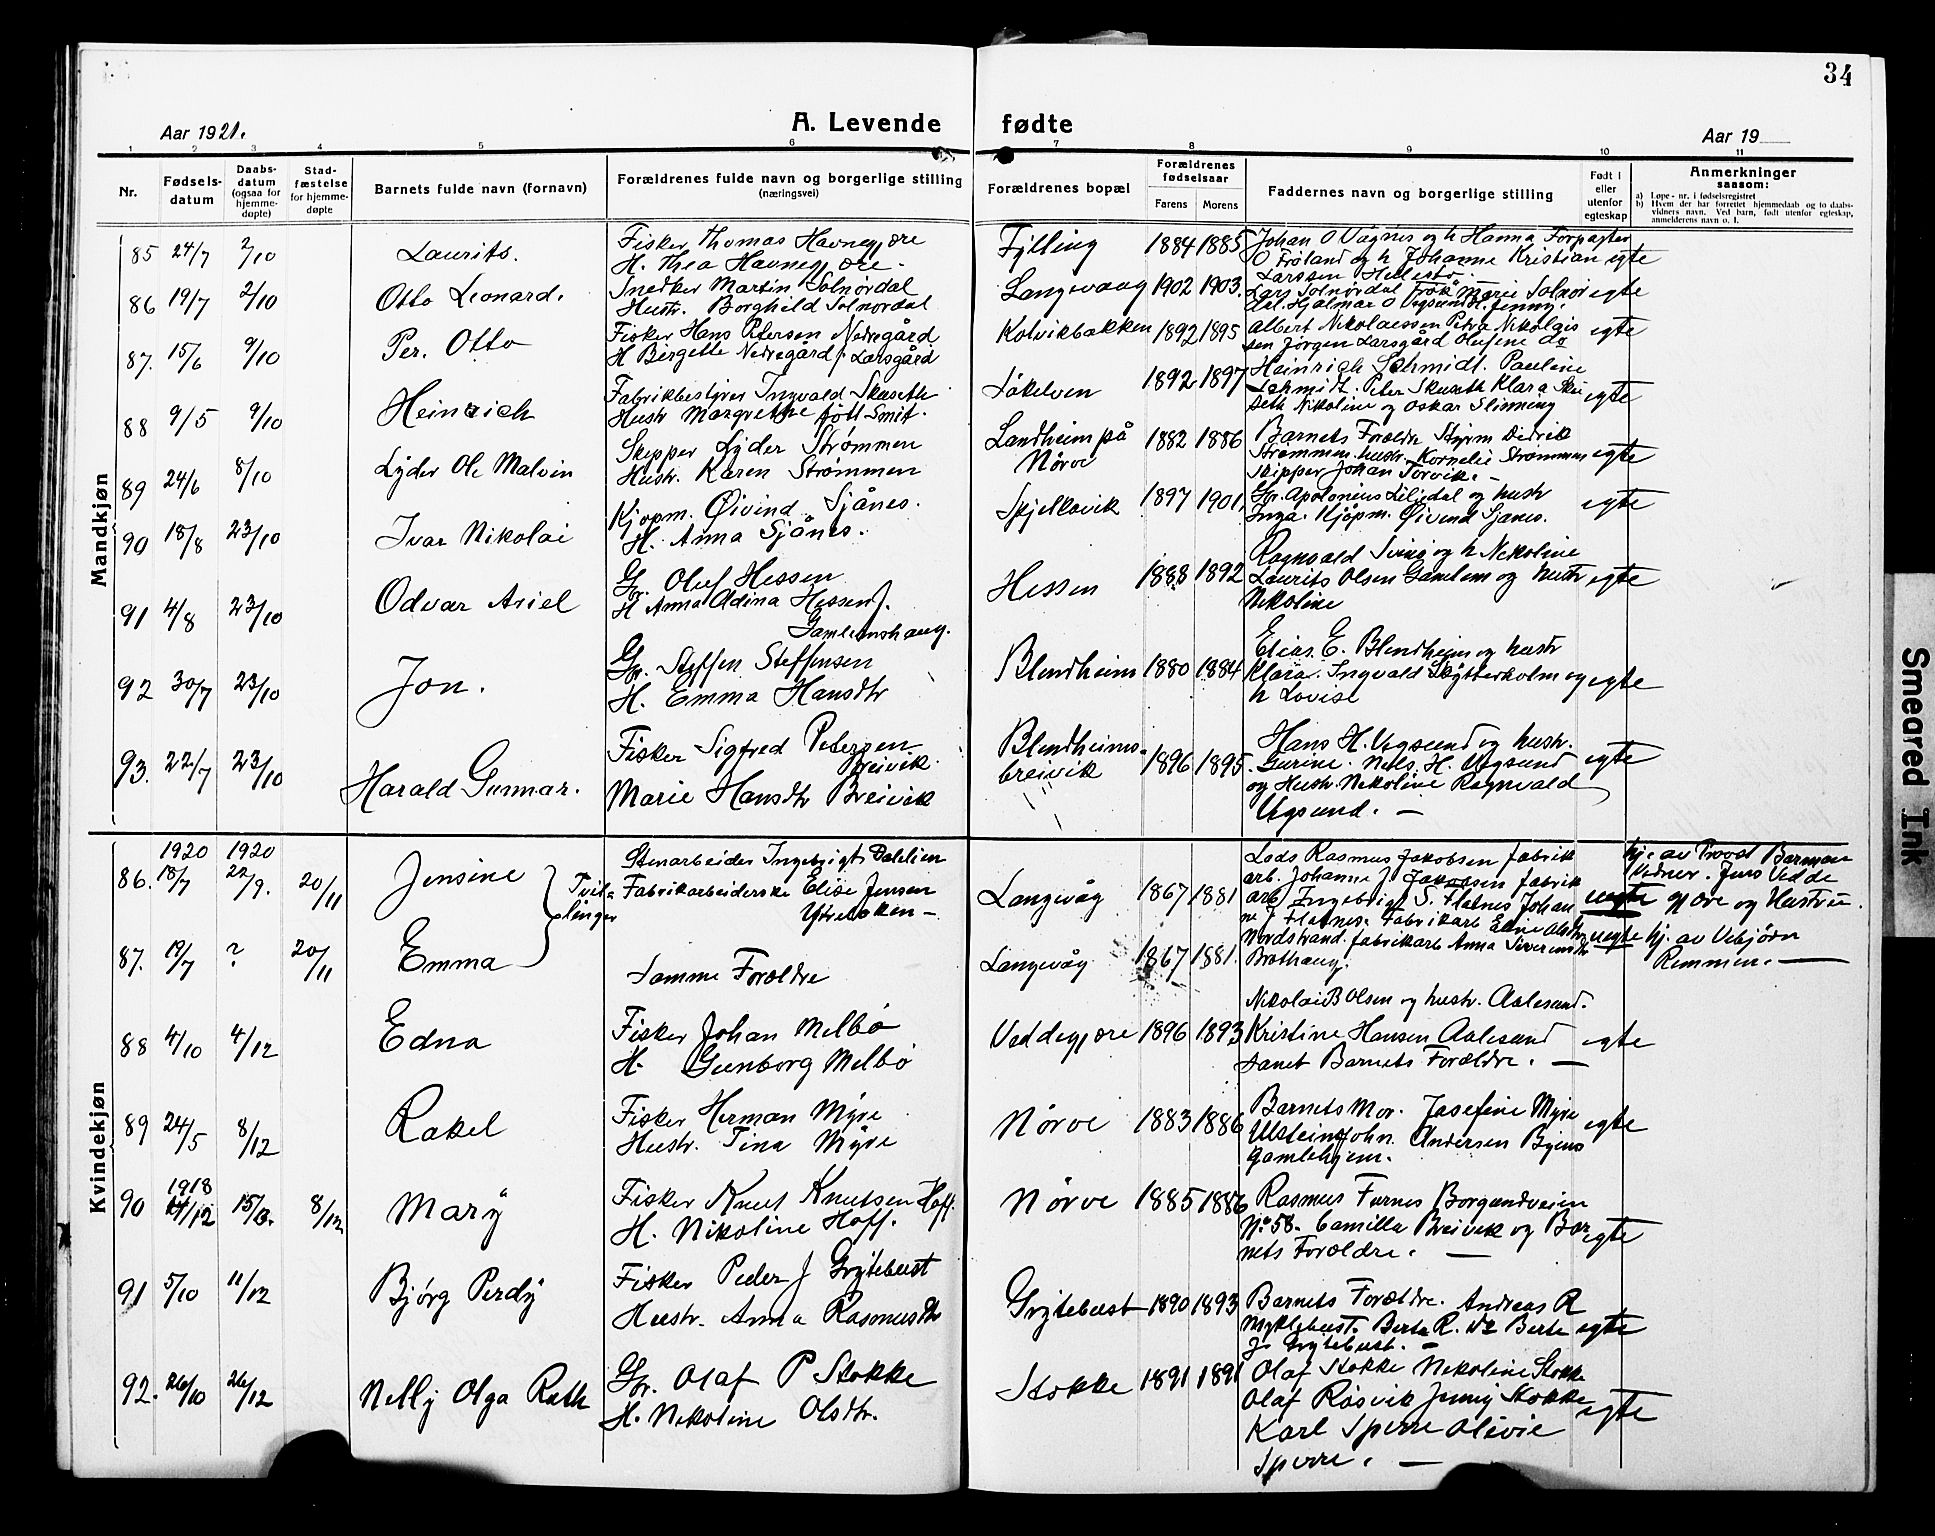 34
Aar 1921.
A. Levende fødte
Aar 19
1 2 3 4 5 6 7 8 9 10 11
Nr.
Fødsels-
datum
Daabs-
datum
(ogsaa for
hjemme-
døpte)
Stad-
fæstelse
for hjemme-
døpte
Barnets fulde navn (fornavn)
Forældrenes fulde navn og borgerlige stilling
(næringsvei)
Forældrenes bopæl
Forældrenes
fødselsaar
Farens
Morens
Faddernes navn og borgerlige stilling
Født i
eller
utenfor
egteskap
Anmerkninger
saasom:
a) Løpe-nr. i fødselsregistret
b) Hvem der har forrettet hjemmedaab og to daabs-
vidners navn. Ved barn, født utenfor egteskap,
anmelderens navn o. l.
Mandkjøn
85 24/7 2/10 Laurits.
Fisker Thomas Havnegjøre
H. Thea Havnegjøre.
Fylling 1884 1885
Johan O Vågnes og h Hanna Forpagter
O Frøland og h Johanne Kristian
Larssen Hellestø.
egte
86 19/7 2/10 Otto Leonard.
Snedker Martin Solnørdal
Hustr. Borghild Solnørdal
Langevaag 1902 1903.
Lars Solnørdal Frøk Marie Solnør
Hjalmar O Vegsund Jenny.
egte
87. 15/6 9/10 Per. Otto
Fisker Hans Petersen Nedregård
H Bergette Nedregård f. Larsgård
Kolvikbakken 1892 1895
Albert Nikolaessen Petra Nikolais
sen Jørgen Larsgård Olufine do
egte
88 9/5 9/10 Heinrich
Fabrikbestyrer Ingvald Skuseth
Hustr Margrethe født Smit.
Søkelven 1892 1897
Heinrich Schmidt. Pauline
Schmidt. Peter Skuseth Klara Sku
seth Nikoline og Oskar Slinning
egte
89 24/6 8/10 Lyder Ole Malvin
Skipper Lyder Strømmen
Hustr. Karen Strømmen
Landheim på
Nørve
1882 1886
Barnets Foreldre Styrm Didrik
Strømmen. hustr. Kornelie Strømmen
Skipper Johan Torvik. –
egte
90 18/8 23/10 Ivar Nikolai
Kjøpm. Øivind Sjånes.
H. Anna Sjånes.
Spjelkavik 1897 1901.
Gr. Apolonius Liljedal og hustr
Inga. Kjøpm. Øivind Sjånes.
egte
91 4/8 23/10 Odvar Ariel
Gr. Oluf Hessen
H Anna Adina Hessen f.
Gamlemshaug.
Hessen 1888 1892
Ragnvald og h Nikoline
Laurits Olsen Gamlem og hustr
Nikoline
egte
92 30/7 23/10 Jon.
Gr. Steffen Steffensen
H. Emma Hansdtr
Blindheim 1880 1884
Elias. E. Blindheim og hustr
Klara. Ingvald Skytterholm og
h Lovise
egte
93. 22/7 23/10 Harald Gunnar.
Fisker Sigfred Petersen
Breivik.
Marie Hansdtr Breivik
Blindheims-
breivik
1896 1895
Hans H. Vegsund og hustr.
Gurine. Nils. H. Vegsund
og Hustr. Nikoline Ragnvald
Vegsund. –
egte
Kvindekjøn
1920 1920
86. 18/7 22/9. 20/11 Jensine
Tvil-
linger
Stenarbeider Ingebrigt Dahlien
Fabrikarbeiderske Elise Jensen
Ytrebøkken –
Langevåg 1867 1881
Lods Rasmus Jakobsen fabrik
arb. Johanne J Jakobsen fabrik
arb Ingebrigt S. Flatnes Johan
ne J Flatnes. Fabrikarb Eline Olsdtr
Nordstrand. fabrikarb Anna Siverinsdtr
Brathaug.
uegte
hj. av Provst Barman
Vidner. Jens Vedde
gjøre og Hustru.
87. 19/7 ? 20/11 Emma
Samme Foreldre
Langevåg 1867 1881.
uegte
hj. av Vebjørn
Remmen. –
88 4/10 4/12 Edna
Fisker Johan Melbø
H. Gunborg Melbø
Veddegjøre 1896 1893
Nikolai B Olsen og hustr. Aalesund.
Kristine Hansen Aalesund
samt Barnets Forældre. –
egte
89 24/5 8/12 Rakel
Fisker Herman Myre
Hustr. Tina Myre
Nørve 1883 1886
Barnets Mor. Josefine Myre
Ulstein John. Andersen Byens
Gamlehjem.
egte
1918
90 8/12 Mary
Fisker Knut Knutsen Hoff.
H. Nikoline Hoff.
Nørve 1885 1886
Rasmus Furnes Borgundveien
No 58. Camilla Breivik og Bar
nets Forældre. –
egte
91 5/10 11/12 Bjørg Perdy
Fisker Peder J Grytebust
Hustr. Anna Rasmusdtr
Grytebust 1890 1893
Barnets Forældre. Andreas R
Myklebust. Berte R. do Berte
J. Grytebust. –
egte
92. 26/10 26/12 Nelly Olga Ruth
Gr. Olaf P Stokke
H. Nikoline Olsdtr.
Stokke 1891 1891
Olaf Stokke Nikoline Stokke
Olaf Røsvik Jenny Stokke
Karl Sperre Olivie
Sperre. –
egte
Smeared Ink